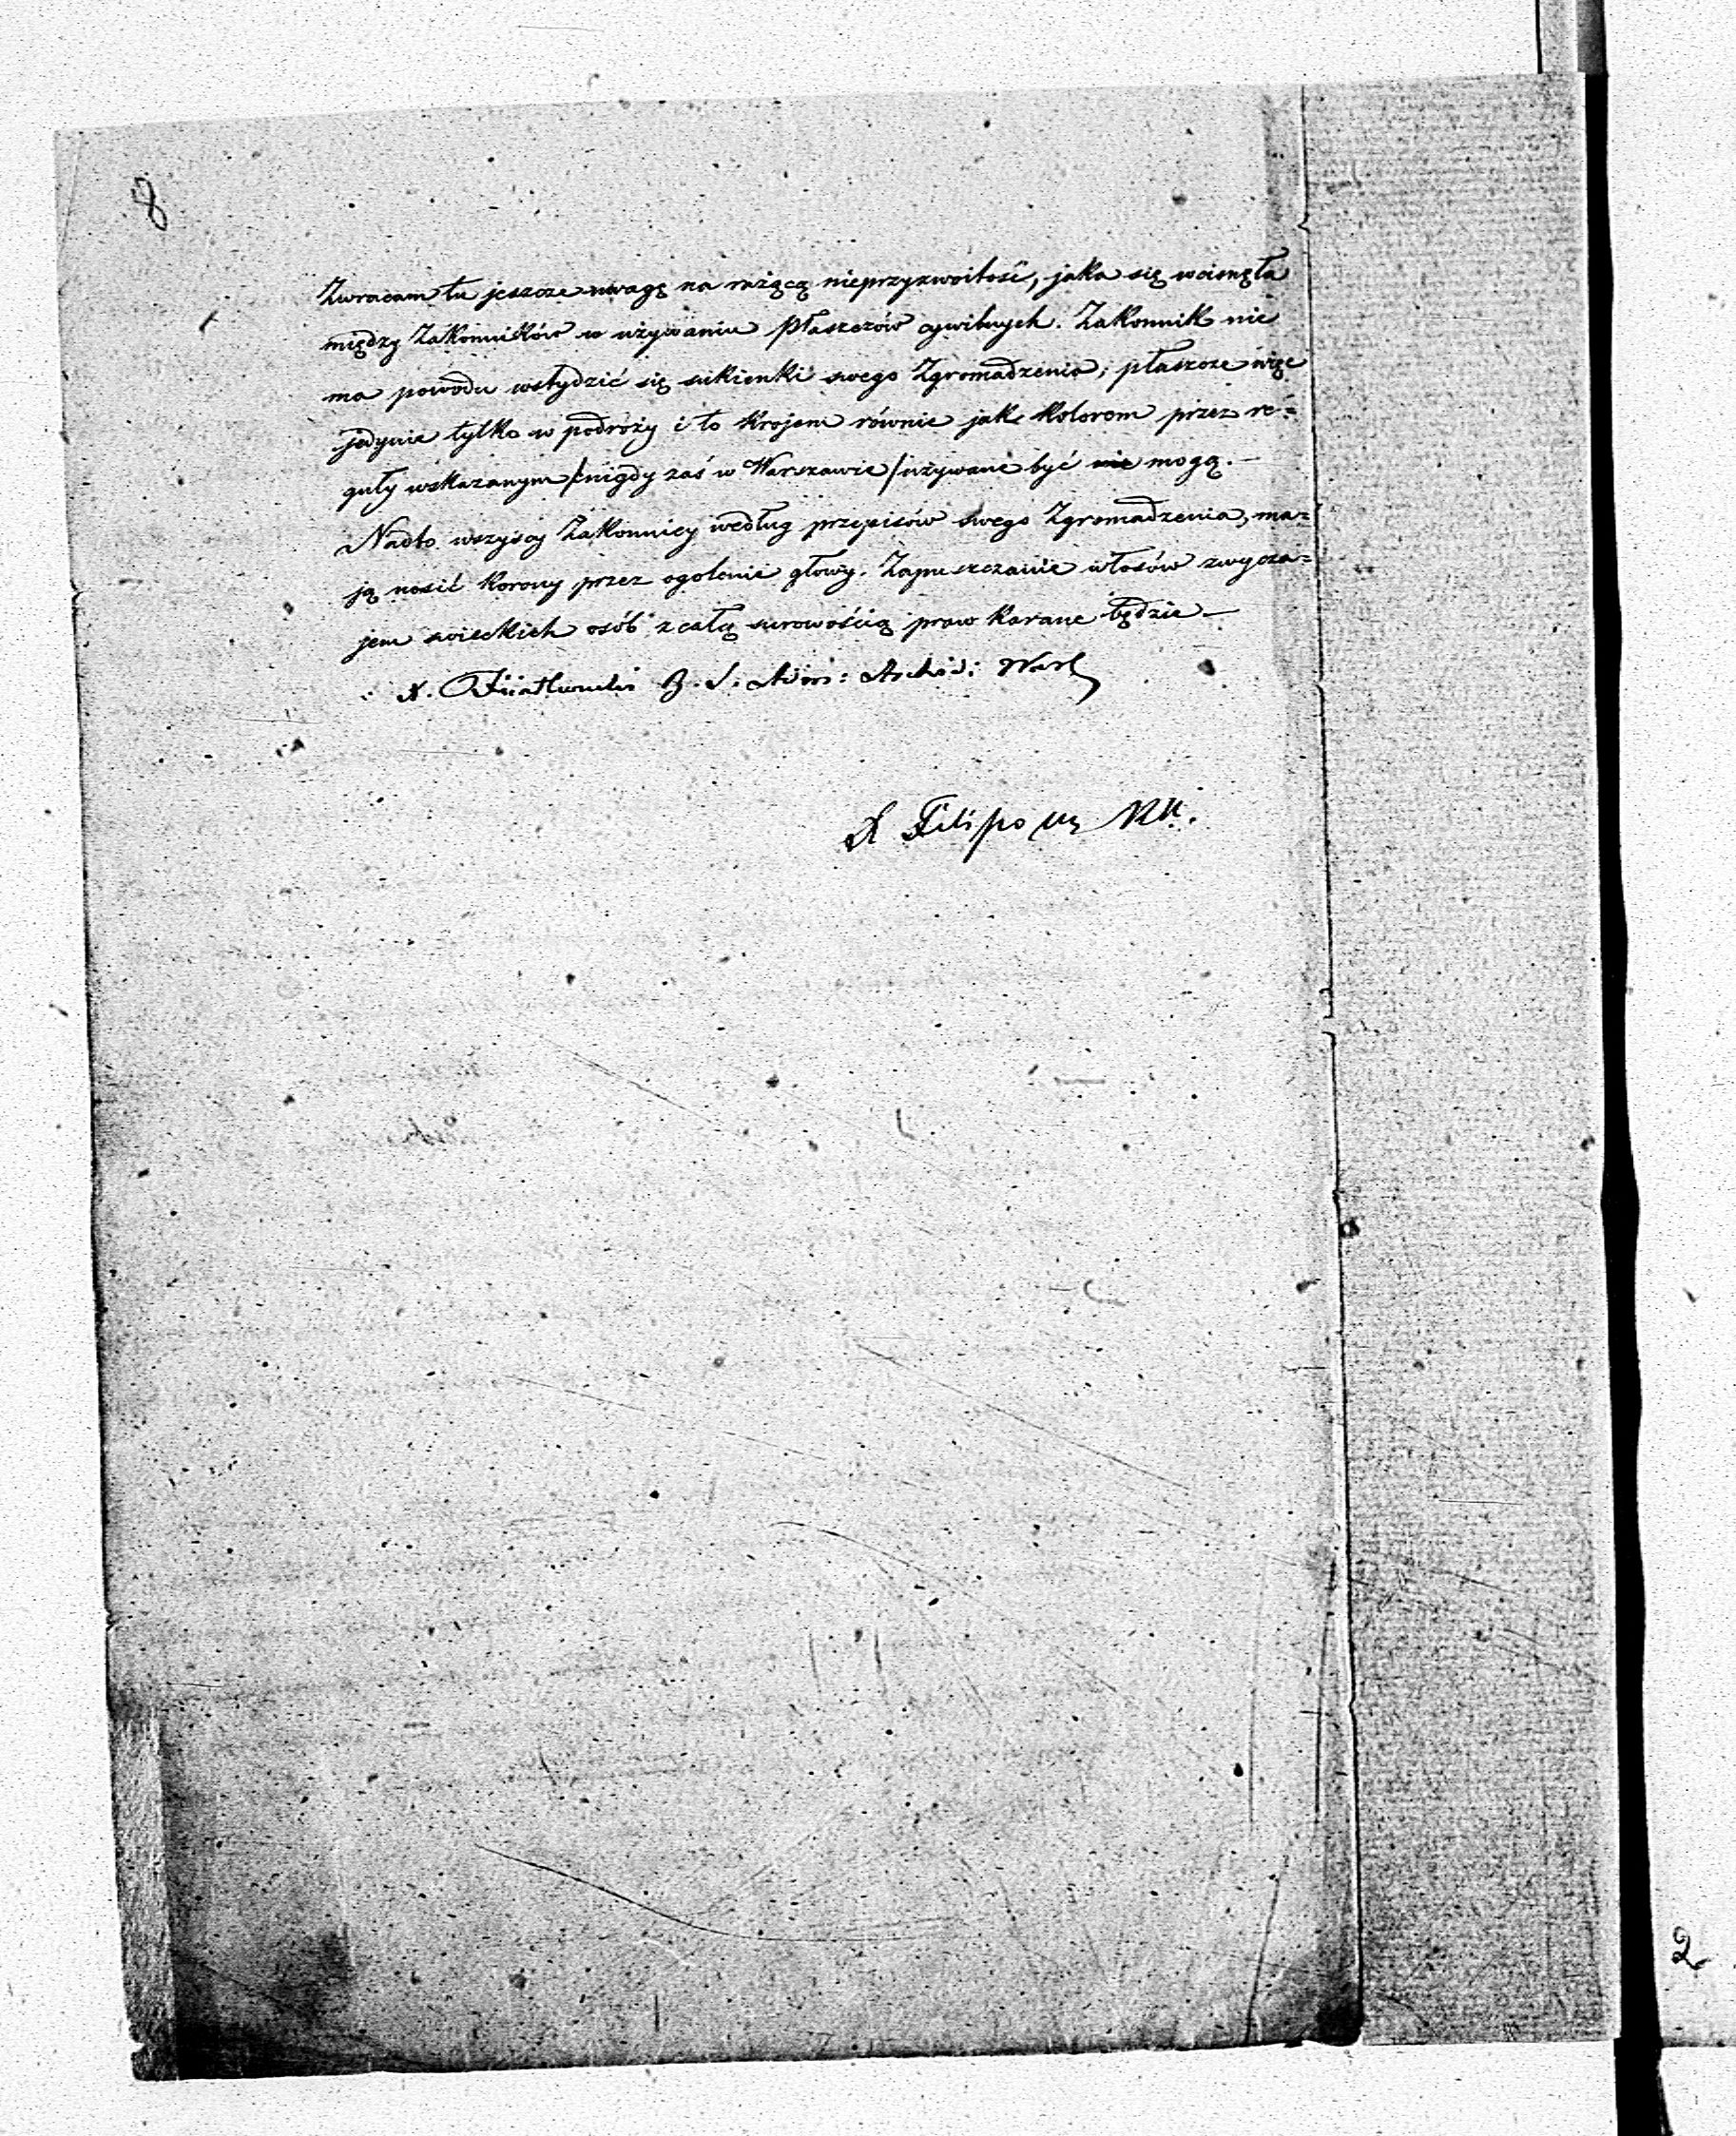 8
Zwracam tu jeszcze uwagę na rażącą nieprzyzwoitość, jaka się wcisnęła
między Zakonników w używaniu płaszczów cywilnych. Zakonnik nie
ma powodu wstydzić się sukienki swego Zgromadzenia; płaszcze więc
jedynie tylko w podróży i to krojem równie jak kolorem przez re=
guły wskazanym /:nigdy zaś w Warszawie/ używane być nie mogą.—
Nadto wszyscy Zakonnicy według przepisów swego Zgromadzenia, ma=
ją nosić korony przez ogolenie głowy. Zapuszczanie włosów zwycza=
jem swieckich osób z całą surowością praw karane będzie—
X. Fijałkowski B. S. Adm: Archid: Wars
2